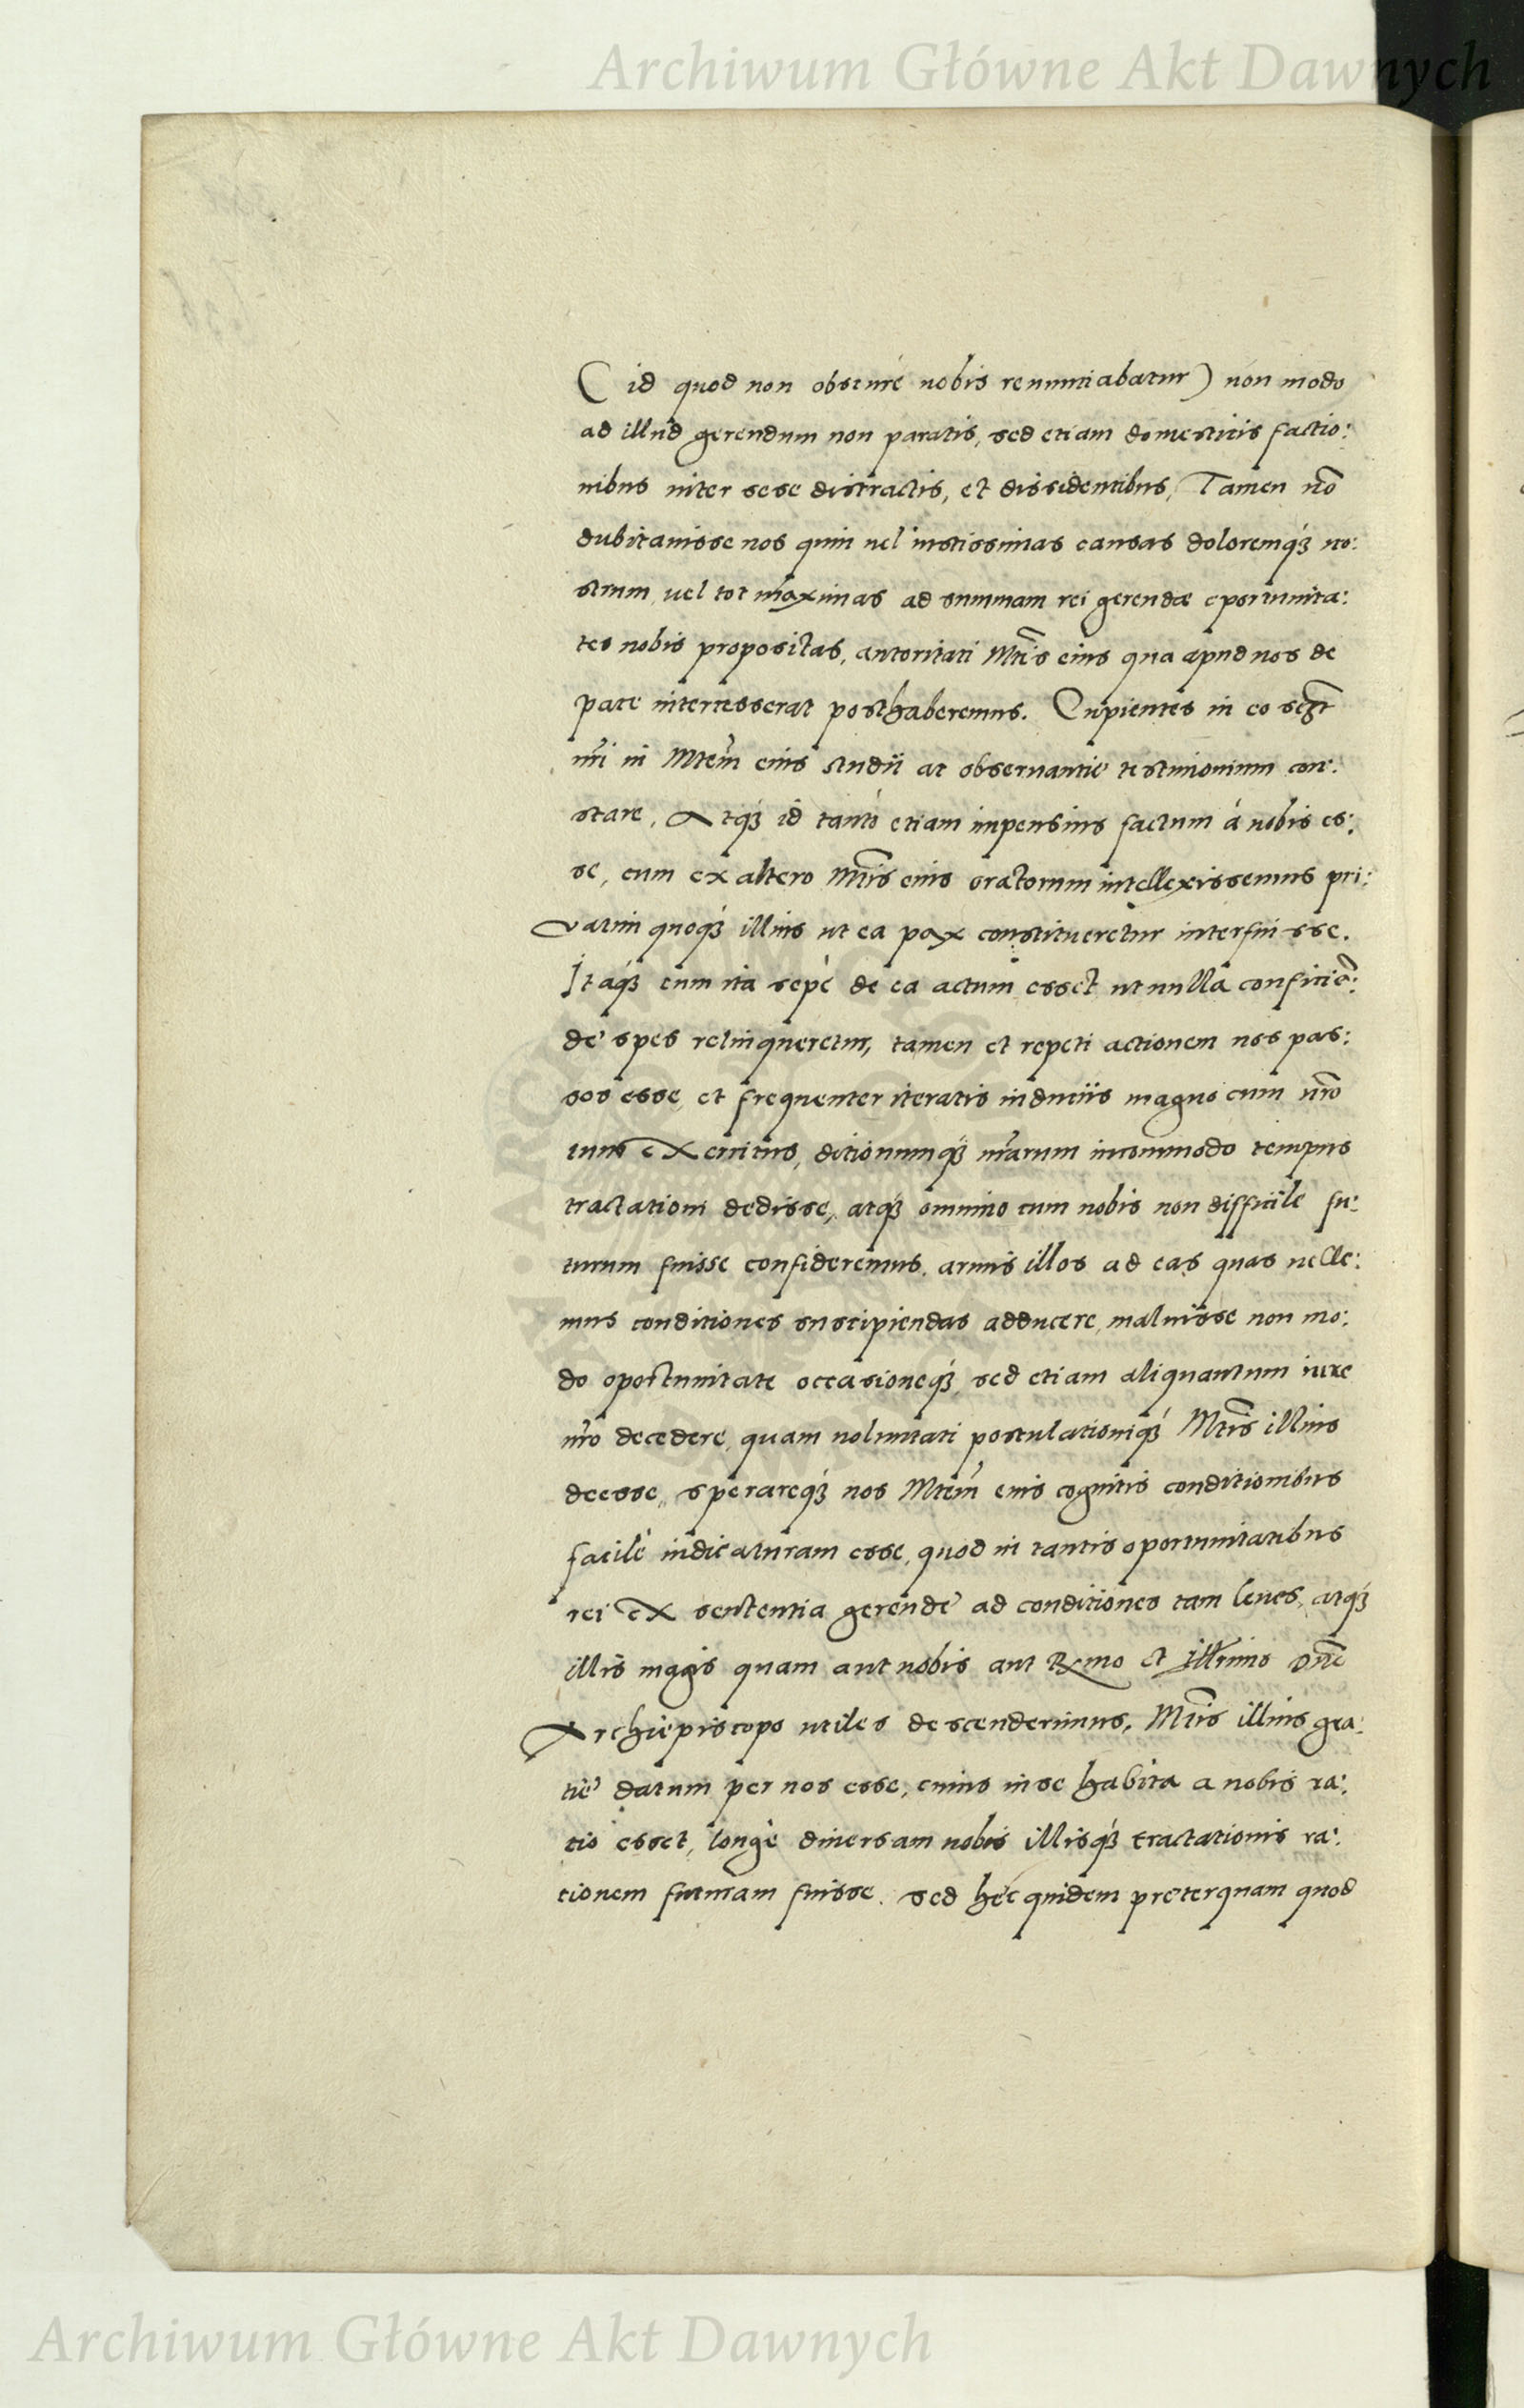 Archiwum Główne Akt Dawnych
( id quod non obscuré nobis renuntiabatur ) non modo
ad illud gerendum non paratis, sed etiam domesticis factio:
nibus inter sese distractis, et dissidentibus, Tamen nõ
dubitauisse nos quin uel iustissimas causas doloremq́ȝ no:
strum, uel tot maximas ad summam rei gerendæ oportunita:
tes nobis propositas, autoritati Mtĩs eius qua apud nos de
pace intercesserat posthaberemus. Cupientes in eo
nr̃i in Mtem̃ eius studii at obseruantie testimonium con:
stare, Atq́ȝ id tantò etiam impensius factum á nobis es:
se, cum ex altero Mtĩs eius oratorum intellexissemus pri:
uatim quoq́ȝ illius ut ea pax constitueretur interfuisse.
Itaq́ȝ cum ita sepè de ea actum esset ut nulla conficiẽ:
de spes relinqueretur, tamen et repeti actionem nos pas:
sos esse, et frequenter iteratis induciis magno cum nr̃o
tum exercitus, ditionumq́ȝ nr̃arum incommodo tempus
tractationi dedisse, atq́ȝ omnino cum nobis non difficile fu:
turum fuisse confideremus, armis illos ad eas quas uelle:
mus conditiones suscipiendas adducere, maluisse non mo:
do oportunitate occasioneq́ȝ, sed etiam aliquantum iure
nr̃o decedere, quam uoluntati postulationiq́ȝ Mtĩs illius
deesse, sperareq́ȝ nos Mtem̃ eius cognitis conditionibus
facilè iudicaturam esse, quod in tantis oportunitatibus
rei ex sententia gerende ad conditiones tam leues, atq́ȝ
illis magis quam aut nobis aut Rx̃mo et illr̃imo Dñe
Archiepiscopo utiles descenderimus, Mtĩs illius gra:
tie datum per nos esse, cuius in se habita a nobis ra:
tio esset, longè diuersam nobis illisq́ȝ tractationis ra:
tionem futuram fuisse. sed hec quidem preterquam quod
Archiwum Główne Akt Dawnych